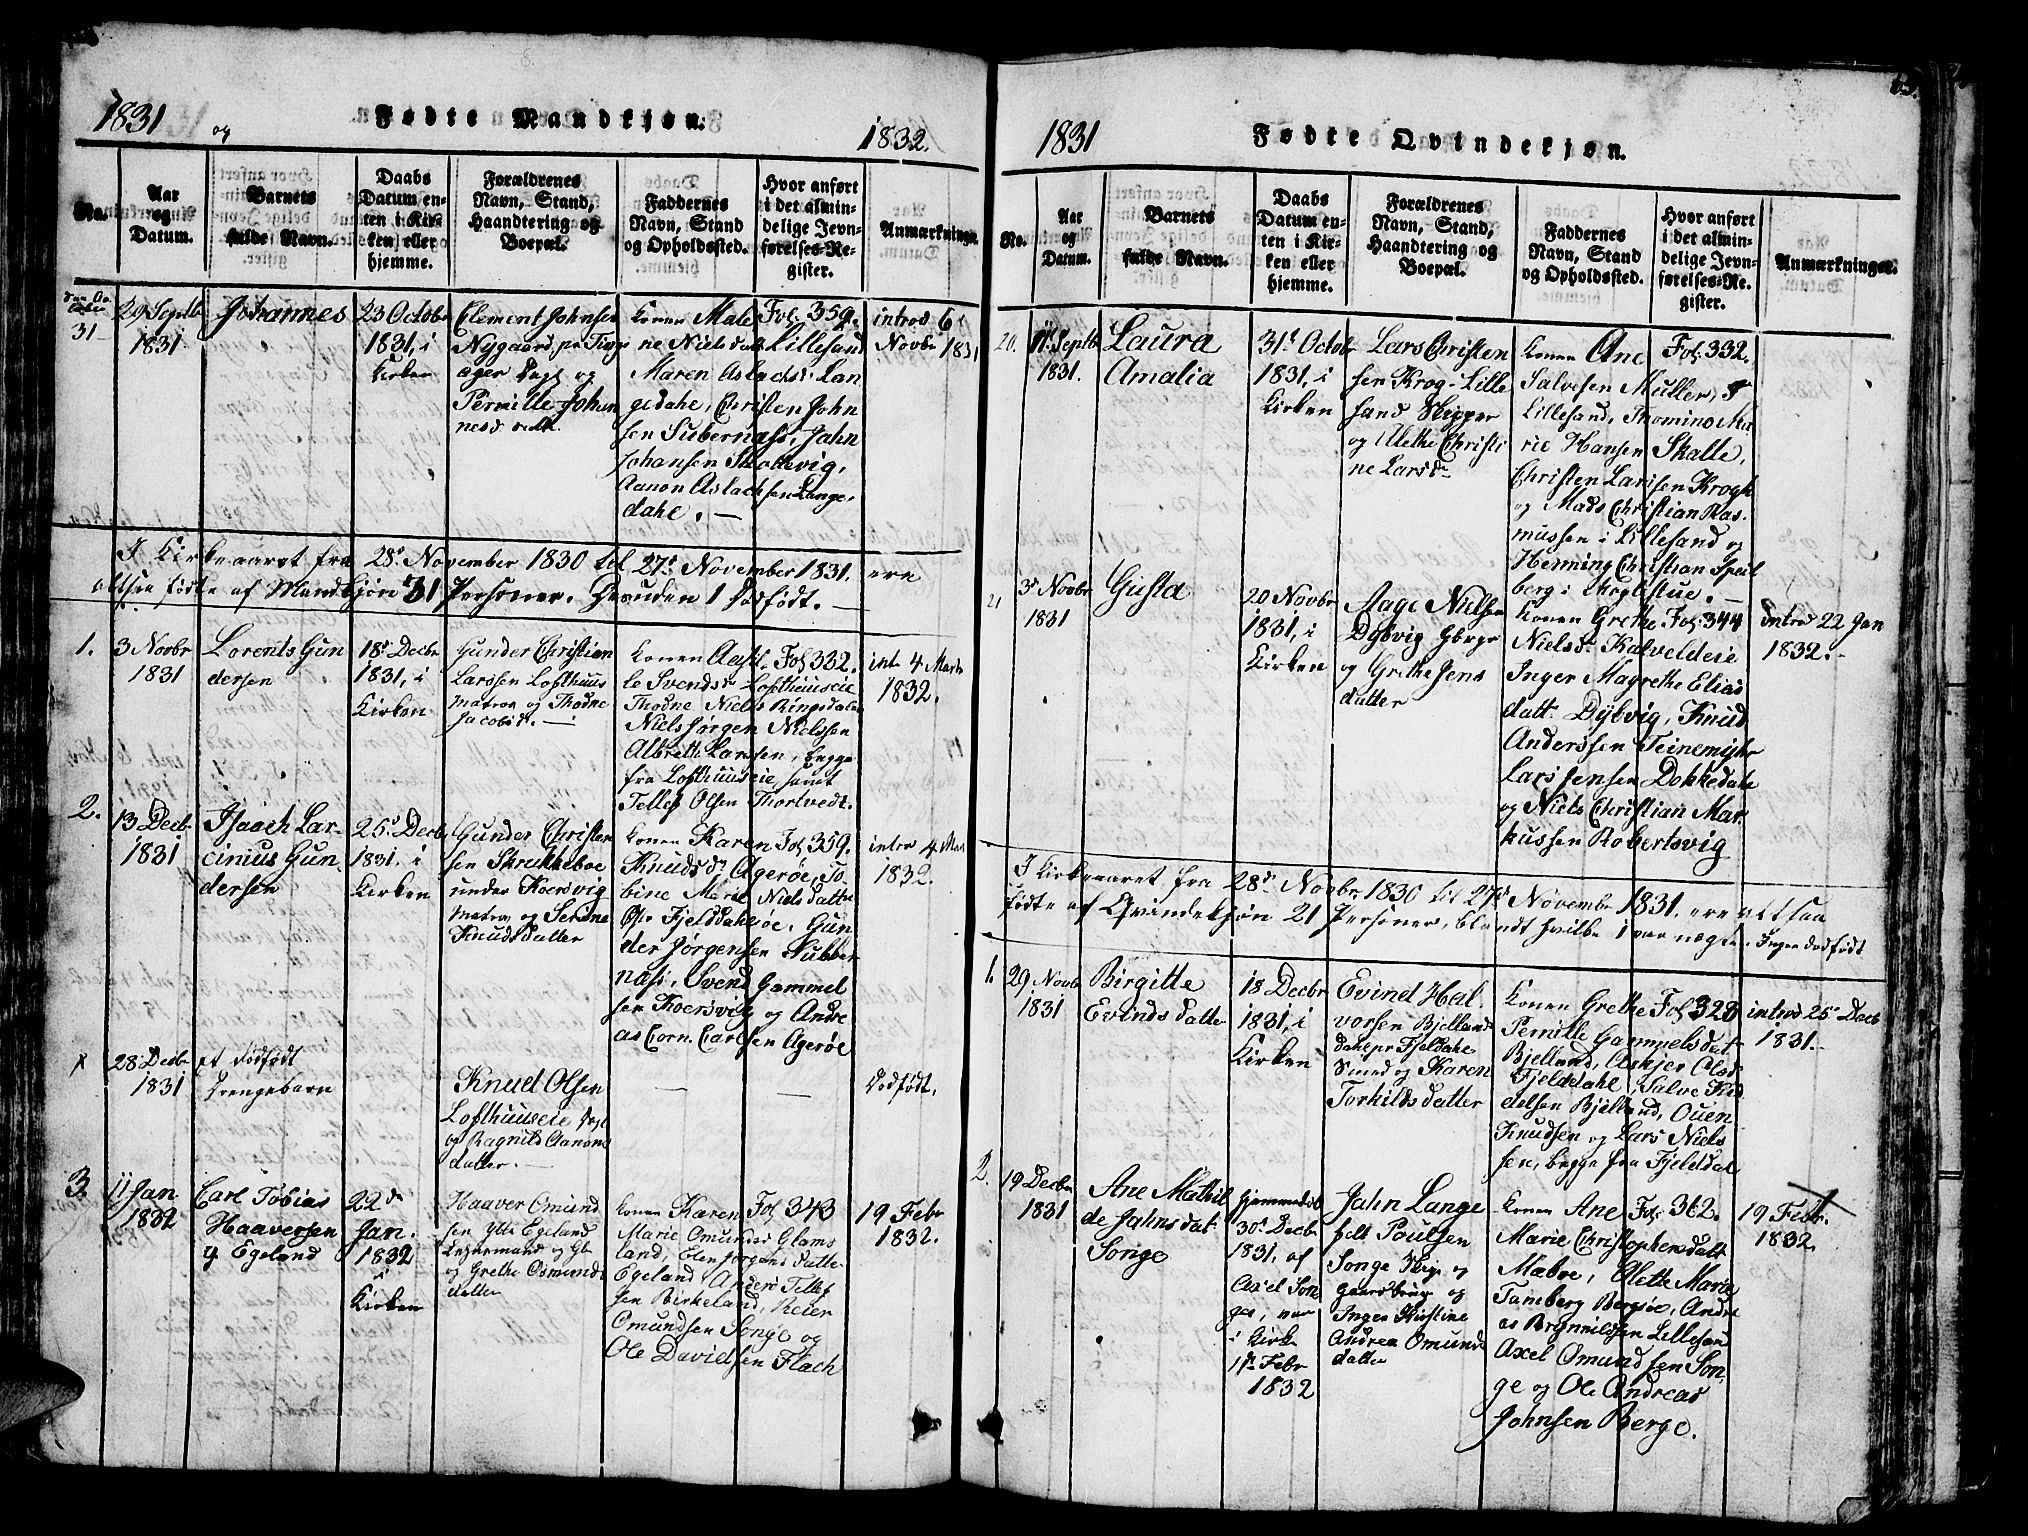 1831 og Fødte Mandkjøn. 1832.
No.
Aar
og
Datum.
Barnets
fulde Navn.
Daabs
Datum en-
ten i Kir-
ken eller
hjemme.
Forældrenes
Navn, Stand,
Haandtering og
Boepæl.
Faddernes
Navn, Stand
og Opholdssted.
Hvor anført
i det almin-
delige Jevn-
førelses-Re-
gister.
Anmærkninger.
31
29 Septb
1831
Johannes
23 Octobr
1831, i
Kirken
Clement Johnsen
Nygaard
og
Pernille Johan
nesdatt.
Konen Male
ne Nielsdatt Lillesand
Maren Aslachsd. Lan
gedahl, Christen John
sen Subernass, Jahn
Johansen Skottevig,
Aanon Aslachsen Lange-
dahl. —
Fol. 359.
introd 6
Novbr 1831
I Kirkeaaret fra 28d November 1830 til 27d November 1831. ere
altsaa fødte af Mandkjøn 31 Personer. Desuden 1 Dødfødt. —
1.
3 Novbr
1831
Lorents Gun
dersen
18d Decbr
1831, i
Kirken
Gunder Christian
Larssen Lofthuus
Matros og Thodne
Jacobsd. —
Konen Aasil
le Svendsd. Lofthuuseie
Thodne Niels Ringsdalen
Niels Jørgen Nielssen
Albreth Larssen, begge
fra Lofthuuseie, samt
Tellef Olsen Thortvedt.
Fol 332.
int 4 Marts
1832.
2.
13 Decbr
1831
Isaach Lar-
cinius Gun
dersen
25d Decbr
1831. i
Kirken
Gunder Christen
sen Skrukkeboe
under Koersvig
Matros og Serine
Knudsdatter
Konen Karen
Knudsd. Agerøe, To
bine Marie Nielsdatter
Ole Fjeldahlsøe, Gun
der Jørgensen Subber
nass, Svend Gammel
sen Koersvig og Andre
as Corn. Carlsen Agerøe
Fol 359.
intro 4 Marts
1832.
28 Decbr
1831
et dødfødt
Drengebarn
Knud Olsen
Lofthuuseie
og Ragnild Aanons
datter. —
—
—
Dødfødt.
3.
11 Jan
1832
Carl Tobias
Haaversen
y Egeland
22de
Jan.
1832
i
Kirken
Haaver Omund
sen Ytre Egeland
og
og Grethe Osmunds
datter
Konen Karen
Marie Omundsd Glams
land, Elen Jørgens datter
Egeland, Anders Tellef
sen Birkeland, Reier
Omundsen Songe og
Ole Davidsen Flach
Fol 343
19 Febr
1832.
1831 Fødte Qvindekjøn.
No.
Aar
og
Datum.
Barnets
fulde Navn.
Daabs
Datum en-
ten i Kir-
ken eller
hjemme.
Forældrenes
Navn, Stand,
Haandtering og
Boepæl.
Faddernes
Navn, Stand
og Opholdssted.
Hvor anført
i det almin-
delige Jevn-
førelses-Re-
gister.
Anmærkninger.
20.
11 Septb
1831.
Laura
Amalia
31d Octobr
1831, i
Kirken
Lars Christen
sen Krog Lille
sand Skipper
og Alethe Christi
ne Larsdr
Konen Ane
Salvesen Muller,
Lillesand, Thomine Ma
rie Hansen Skalle,
Christen Larssen Krogh
og Mads Christian Ras-
mussen i Lillesand og
Henning Christian
berg i
Fol. 332.
21
3d Novbr
1831
Gusta
20 Novbr
1831, i
Kirken
Aage Nielsen
Dybvig
og Grethe Jens
datter
Konen Grethe
Nielsd. Kalveldeie
Inger Magrethe Elias
datt. Dybvig, Knud
Anderssen Teinemyhr
Lars Jensen Dokkedahl
og Niels Christian Mar
kussen Robertsvig
Fol 344
introd 22 Jan
1832. -
I Kirkeaaret fra 28d Novbr 1830 til 27d Novembr 1831. ere altsaa
fødte af Qvindekjøn 21 Personer, blandt hvilke 1 var uægte. Ingen dødfødt
1.
29 Novb
1831
Birgitte
Evinds datter
18 Decbr
1831, i
Kirken
Evind Hal
vorsen Bjelland
Smed og Karen
Torkilds datter
Konen Grethe
Pernille Gammelsdat-
Bjelland, Askjer Olsd.
Fjeldahl, Salve
Bjelland, Ouen
Knudsen og Lars Niels
sen, begge fra Fjeldal
Fol 323
introd 25d Decb
1831. -
2.
19 Decbr
1831
Ane Mathil
de Jahnsdat
Songe
hjemmedøbt
30d Decbr
1831, af
Axel Son
ge, var
i Kirke
17d Febr
1832
Jahn Lange
feldt Poulsen
Songe
og
Inger Kirstine
Andrea Omunds
datter
Konen Ane
Marie Christophersdatt
Mæboe, Olette Marie
Tamberg Bergsøe, Andre
as Brynnildsen Lillesand
Axel Omundsen Son-
ge og Ole Andreas
Johnsen Berge.
Fol. 362.
19 Febr.
1832.